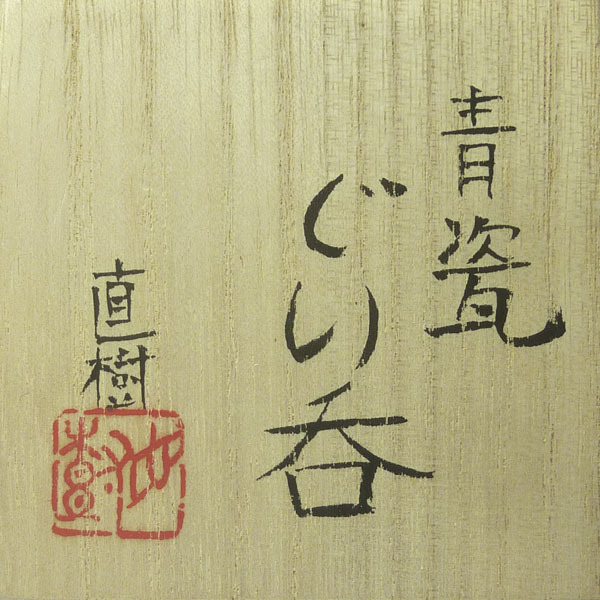 青瓷
ぐい呑
直樹